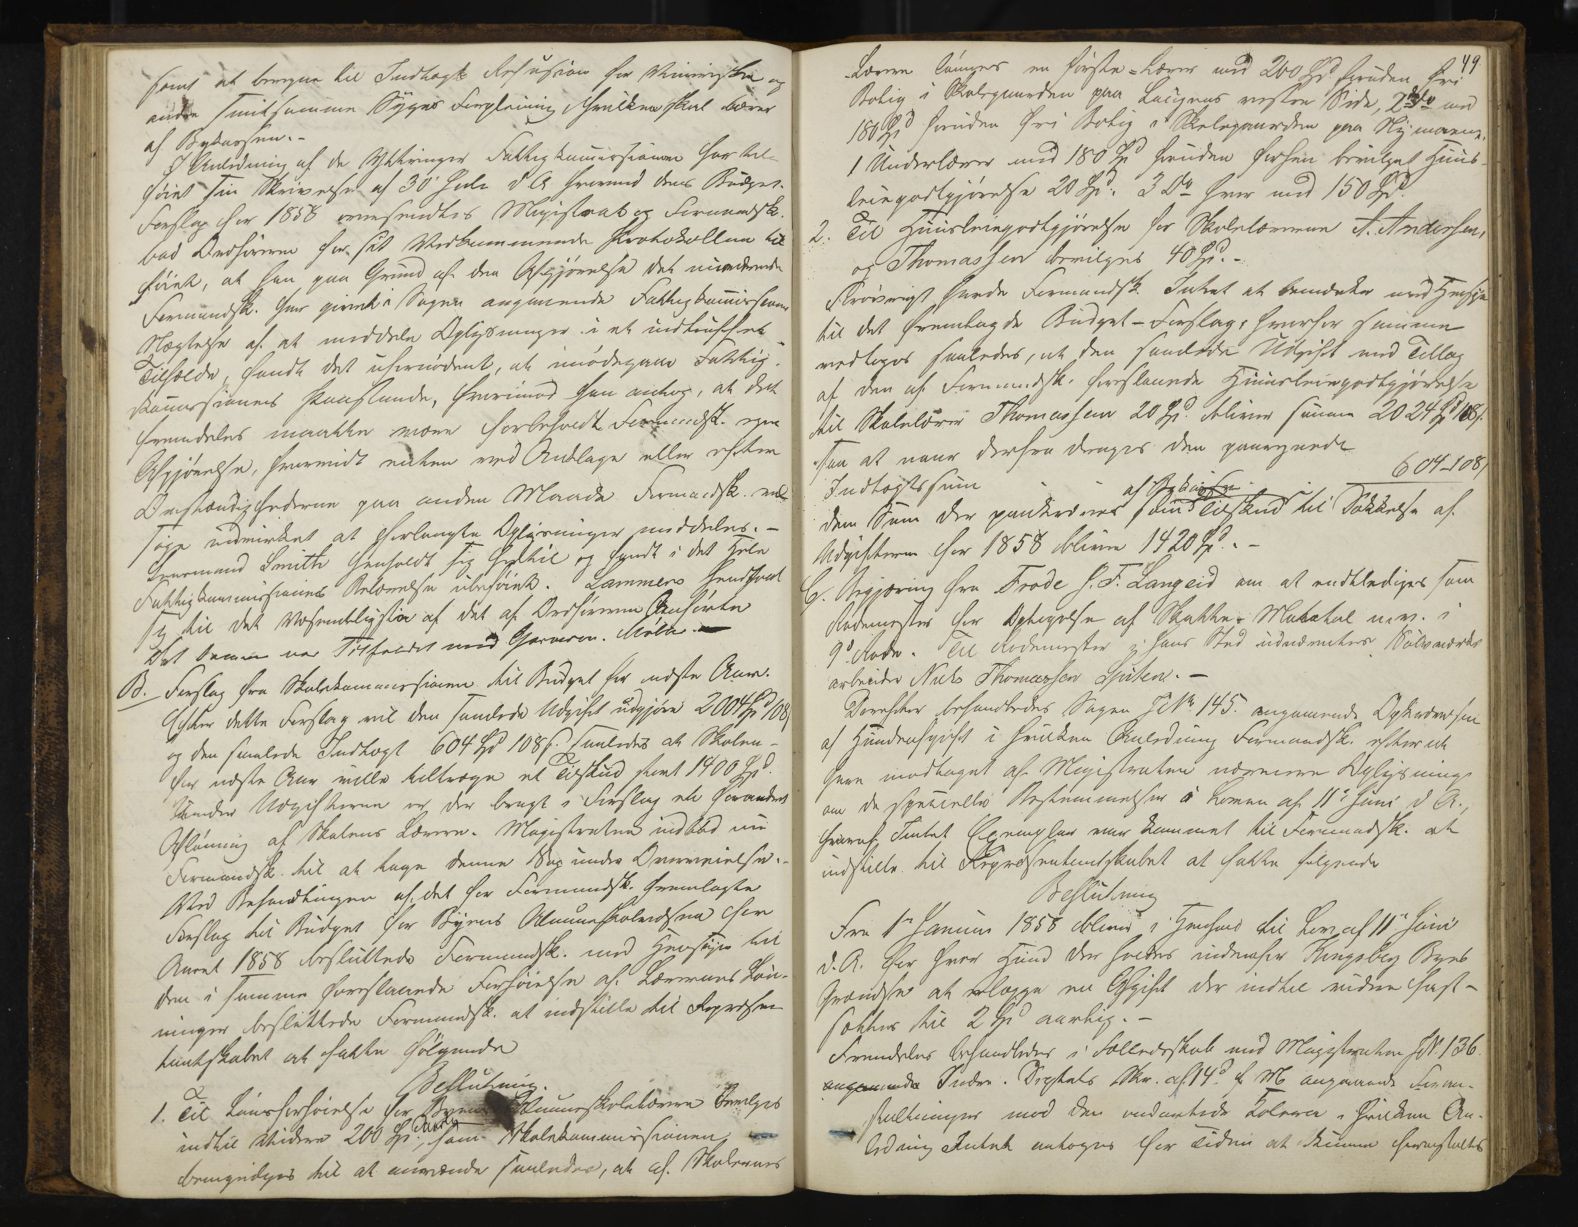 samt at beregne til Indtægt Refusion for Veneriske og
andre smitsomme Syges Forpleining, hvilken skal bæres
af Bykassen.-
I Anledning af de Yttringer Fattigkommissionen har til-
føiet sin Skrivelse af 30' Juli d A hvormed dens Budget-
Forslag for 1858 oversendtes Magistrat og Formandsk.
bad Ordføreren for sit Vedkommende Protokollen til
ført, at han paa Grund af den Afgjørelse det nuværende
Formandsk. har givet i Sagen angaaende Fattigkommissionens
Nægtelse af at meddele Oplysninger i et indtruffet
Tilfælde, fandt det ufornødent, at imødegaae Fattig-
kommissionens Paastande, hvorimod han antog, at det
fremdeles maatte være forbeholdt Formandsk. egen
Afgjørelse, hvorvidt enten ved Anklage eller efter
Omstændighederne paa anden Maade Formandsk. vil
søge udvirket at forlangte Oplysninger meddeles.-
Formand Smith henholdt sig hertil og fandt i det Hele
Fattigkommissionens Belærelse ubeføiet. Lammers henholdt
sig til det Væsentligste af det af Ordføreren Anførte
Det samme var Tilfældet med
B. Forslag fra Skolekommissionen til Budget for næste Aar.
Efter dette Forslag vil den samlede Udgift udgjøre 2004 Spd 108 s
og den samlede Indtægt 604 Spd 108 s. saaledes at Skolen
for næste Aar ville tiltrænge et Tilskud stort 1400 Spd.
Under Udgifterne er der bragt i Forslag en forandret
Aflønning af Skolens Lærere. Magistraten indbød nu
Formandsk. til at tage denne Sag under Overveielse.-
Ved Behandlingen af det for Formandsk. fremlagte
Forslag til Budget for Byens Almueskolevæsen for
Aaret 1858 besluttede Formandsk. med Hensyn til
den i samme foreslaaede Forhøielse af Lærernes Løn-
ninger besluttede Formandsk. at indstille til Repræsen-
tantskabet at fatte følgende
Beslutning.
1. Til Lønsforhøielse for Byens Almueskolelærere bevilges
indtil videre 200 Spd., som Skolekommissionen
bemyndiges til at anvende saaledes, at af Skolernes
49
Lærere lønnes en første-Lærer med 200 Spd foruden fri
Bolig i Skolegaarden paa Laugens vestre Side, 2den do med
180 Spd foruden fri Bolig i Skolegaarden paa Nymoen,
1 Underlærer med 180 Spd foruden forhen bevilget Huus-
leiegodtgjørelse 20 Spd. 3 Do hver med 150 Spd.
2. Til Huusleiegodtgjørelse for Skolelærerne A. Andersen,
og Thomassen bevilges 40 Spd.-
Forøvrigt havde Formandsk. Intet at bemærke med Hensyn
til det fremlagde Budget-Forslag, hvorfor samme
vedtoges saaledes, at den samlede Udgift med Tillæg
af den af Formandsk. foreslaaede Huusleiegodtgjørelse
til Skolelærer Thomassen 20 Spd. bliver samme 2024 Spd 108 s.
saa at naar derfra drages den paaregnede
Indtægtssum 604-108 s
den Sum der paakræves af Bykassen som Tilskud til Dækkelse af
Udgifterne for 1858 bliver 1420 Spd.-
C. Begjæring fra Frode H. F. Langeid om at entlediges som
Rodemester for Optagelse af Skatte-Mandtal m.v. i
9de Rode. Til Rodemester i hans Sted udnævntes Sølvværks
arbeider Niels Thomassen Spiten.-
Derefter behandledes Sagen J No 145. angaaende Ophævelsen
af Hundeafgift i hvilken Anledning Formandsk. efter at
have modtaget af Magistraten nærmere Oplysning
om de specielle Bestemmelser i Loven af 11te Juni d A.,
hvoraf Intet Exemplar var kommet til Formandsk. at
indstille til Repræsentantskabet at fatte følgende
Beslutning
Fra 1ste Januar 1858 bliver i Henhold til Lov af 11te Juni
d. A. for hver Hund der holdes indenfor Kongsberg Byes
Grændse at erlægge en Afgift der indtil videre fast-
sættes til 2 Spd aarlig.-
Fremdeles behandledes i Fælledsskab med Magistraten J N. 136
angaaende Indre. Depts Skr. af 14de f M angaaende Foran-
staltninger mod den ondartede Kolera i hvilken An-
ledning Intet antoges for Tiden at kunne foranstaltes